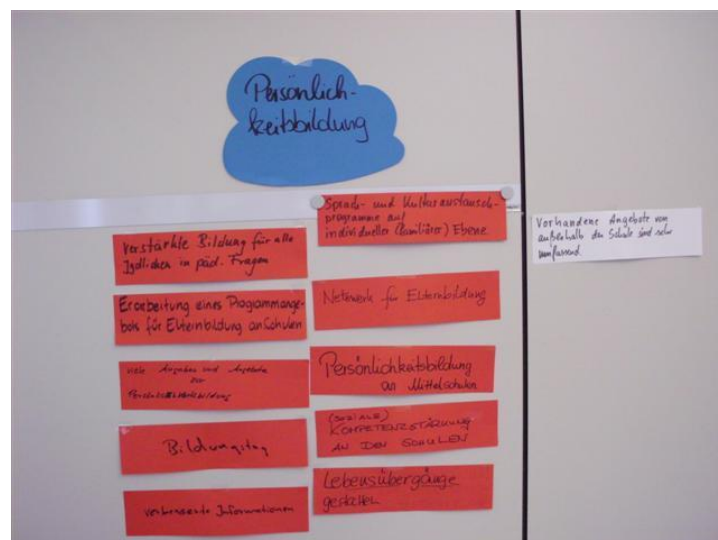 Persönlich-
keitsbildung
Verstärkte Bildung für alle
Jgdlichen in päd. Fragen
Erarbeitung eines Programmange-
bots für Elternbildung an Schulen
viele Angaben und Angebote
zur
Persönlichkeitsbildung
Bildungstag
verbesserte Informationen
Sprach- und Kulturaustausch-
programme auf
individueller (familiärer) Ebene
Netzwerk für Elternbildung
Persönlichkeitsbildung
an Mittelschulen
(SOZIALE)
KOMPETENZSTÄRKUNG
AN DEN SCHULEN
Lebensübergänge
gestalten
Vorhandene Angebote von
außerhalb der Schule sind sehr
umfassend.